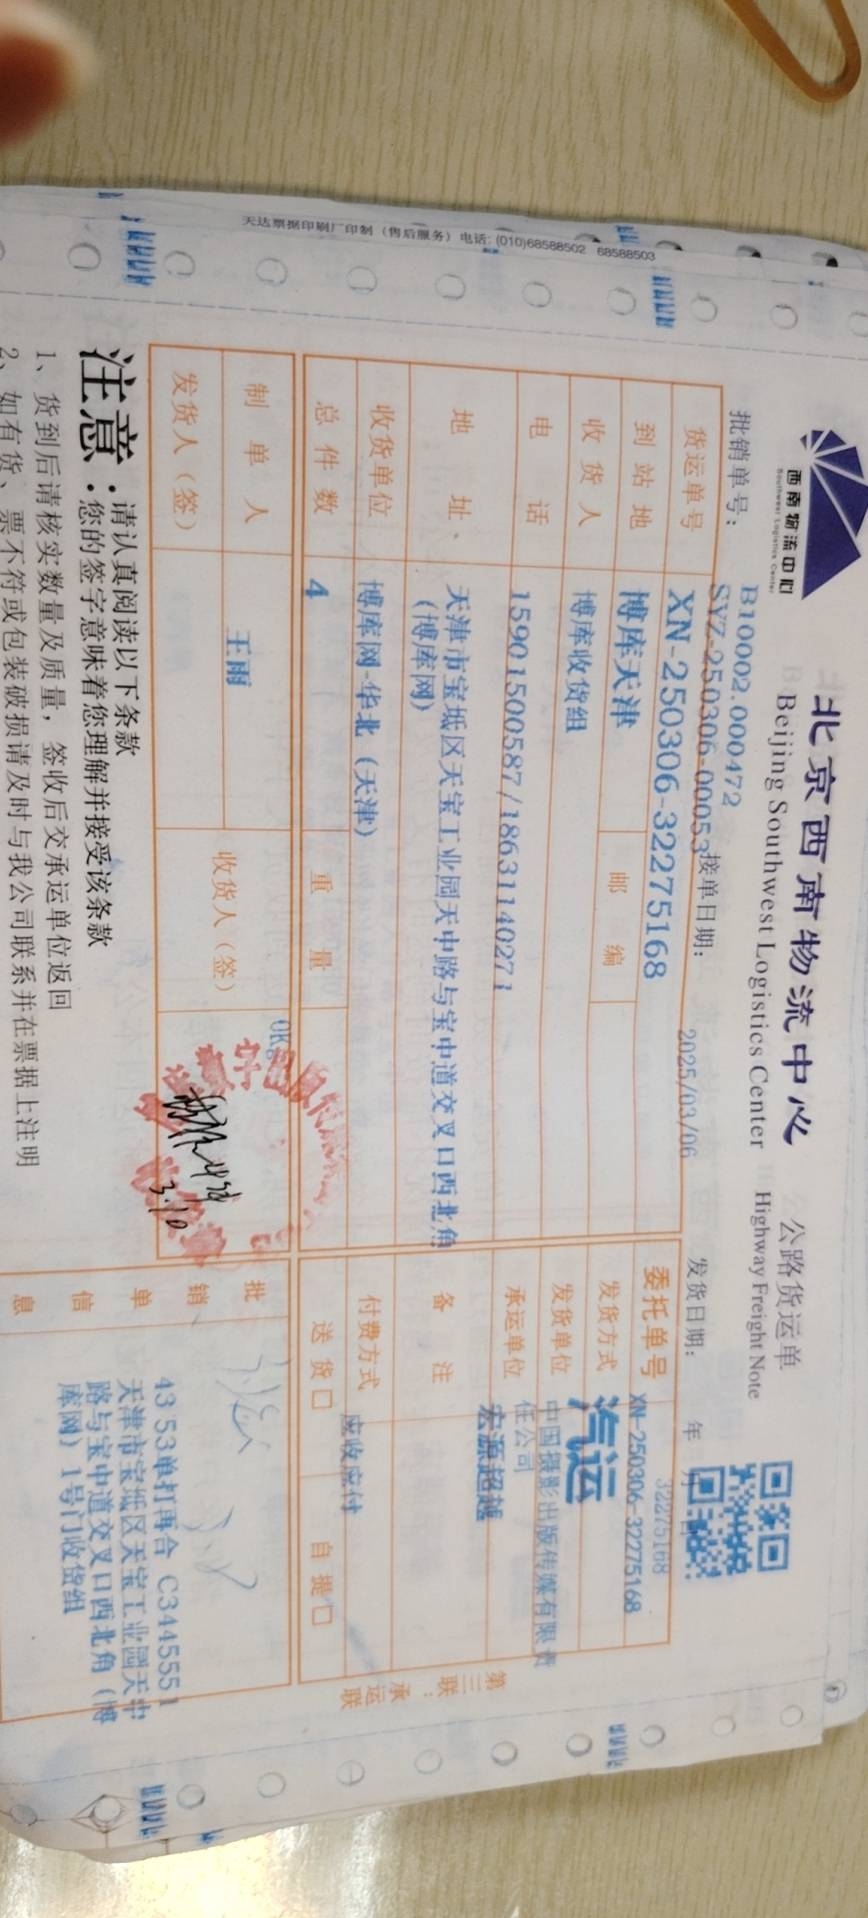 天达票据印刷厂印制（售后服务）电话: (010)68588502 68588503
西南物流中心
Southwest Logistics Center
北京西南物流中心 公路货运单
Beijing Southwest Logistics Center Highway Freight Note
批销单号： B10002.000472
SVZ-250306-00053 接单日期： 2025/03/06 发货日期： 年 月 日
货运单号 XN-250306-32275168
32275168
委托单号 XN-250306-32275168
到站地 博库天津 邮编
发货方式 汽运
收货人 博库收货组
发货单位 中国摄影出版传媒有限责任公司
电话 15901500587/18631140271
承运单位 宏源超越
地址 天津市宝坻区天宝工业园天中路与宝中道交叉口西北角
(博库网)
备注
收货单位 博库网-华北（天津）
付费方式 应收应付
总件数 4 重量
送货□ 自提□
制单人 王雨
发货人（签） 收货人（签）
OK
3.10
批销单信息
43 53单打再合 C3445551
天津市宝坻区天宝工业园天中
路与宝中道交叉口西北角（博
库网）1号门收货组
第三联：承运联
注意：请认真阅读以下条款
您的签字意味着您理解并接受该条款
1、货到后请核实数量及质量，签收后交承运单位返回
2、如有货、票不符或包装破损请及时与我公司联系并在票据上注明